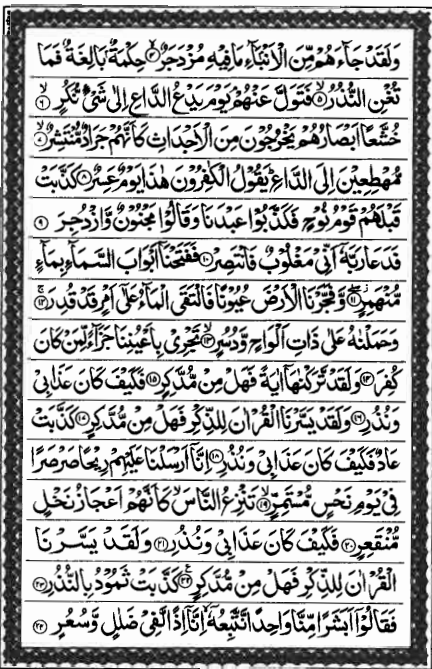 وَلَقَدْ جَآءَهُمْ مِّنَ الْاَنْۢبَآءِ مَا فِيْهِ مُزْدَجَرٌ ۙ۴ حِكْمَةٌۢ بَالِغَةٌ فَمَا
تُغْنِ النُّذُرُ ۙ۵ فَتَوَلَّ عَنْهُمْ ۘ يَوْمَ يَدْعُ الدَّاعِ اِلٰى شَيْءٍ نُّكُرٍ ۙ۶
خُشَّعًا اَبْصَارُهُمْ يَخْرُجُوْنَ مِنَ الْاَجْدَاثِ كَاَنَّهُمْ جَرَادٌ مُّنْتَشِرٌ ۙ۷
مُّهْطِعِيْنَ اِلَى الدَّاعِ ۭ يَقُوْلُ الْكٰفِرُوْنَ هٰذَا يَوْمٌ عَسِرٌ ۸ كَذَّبَتْ
قَبْلَهُمْ قَوْمُ نُوْحٍ فَكَذَّبُوْا عَبْدَنَا وَقَالُوْا مَجْنُوْنٌ وَّازْدُجِرَ ۹
فَدَعَا رَبَّهٗٓ اَنِّيْ مَغْلُوْبٌ فَانْتَصِرْ ۱۰ فَفَتَحْنَآ اَبْوَابَ السَّمَآءِ بِمَآءٍ
مُّنْهَمِرٍ ۱۱ وَّفَجَّرْنَا الْاَرْضَ عُيُوْنًا فَالْتَقَى الْمَآءُ عَلٰٓى اَمْرٍ قَدْ قُدِرَ ۚ۱۲
وَحَمَلْنٰهُ عَلٰى ذَاتِ اَلْوَاحٍ وَّدُسُرٍ ۙ۱۳ تَجْرِيْ بِاَعْيُنِنَا ۚ جَزَآءً لِّمَنْ كَانَ
كُفِرَ ۱۴ وَلَقَدْ تَّرَكْنٰهَآ اٰيَةً فَهَلْ مِنْ مُّدَّكِرٍ ۱۵ فَكَيْفَ كَانَ عَذَابِيْ
وَنُذُرِ ۱۶ وَلَقَدْ يَسَّرْنَا الْقُرْاٰنَ لِلذِّكْرِ فَهَلْ مِنْ مُّدَّكِرٍ ۱۷ كَذَّبَتْ
عَادٌ فَكَيْفَ كَانَ عَذَابِيْ وَنُذُرِ ۱۸ اِنَّآ اَرْسَلْنَا عَلَيْهِمْ رِيْحًا صَرْصَرًا
فِيْ يَوْمِ نَحْسٍ مُّسْتَمِرٍّ ۙ۱۹ تَنْزِعُ النَّاسَ ۙ كَاَنَّهُمْ اَعْجَازُ نَخْلٍ
مُّنْقَعِرٍ ۲۰ فَكَيْفَ كَانَ عَذَابِيْ وَنُذُرِ ۲۱ وَلَقَدْ يَسَّرْنَا
الْقُرْاٰنَ لِلذِّكْرِ فَهَلْ مِنْ مُّدَّكِرٍ ۲۲ كَذَّبَتْ ثَمُوْدُ بِالنُّذُرِ ۲۳
فَقَالُوْٓا اَبَشَرًا مِّنَّا وَاحِدًا نَّتَّبِعُهٗٓ ۙ اِنَّآ اِذًا لَّفِيْ ضَلٰلٍ وَّسُعُرٍ ۲۴